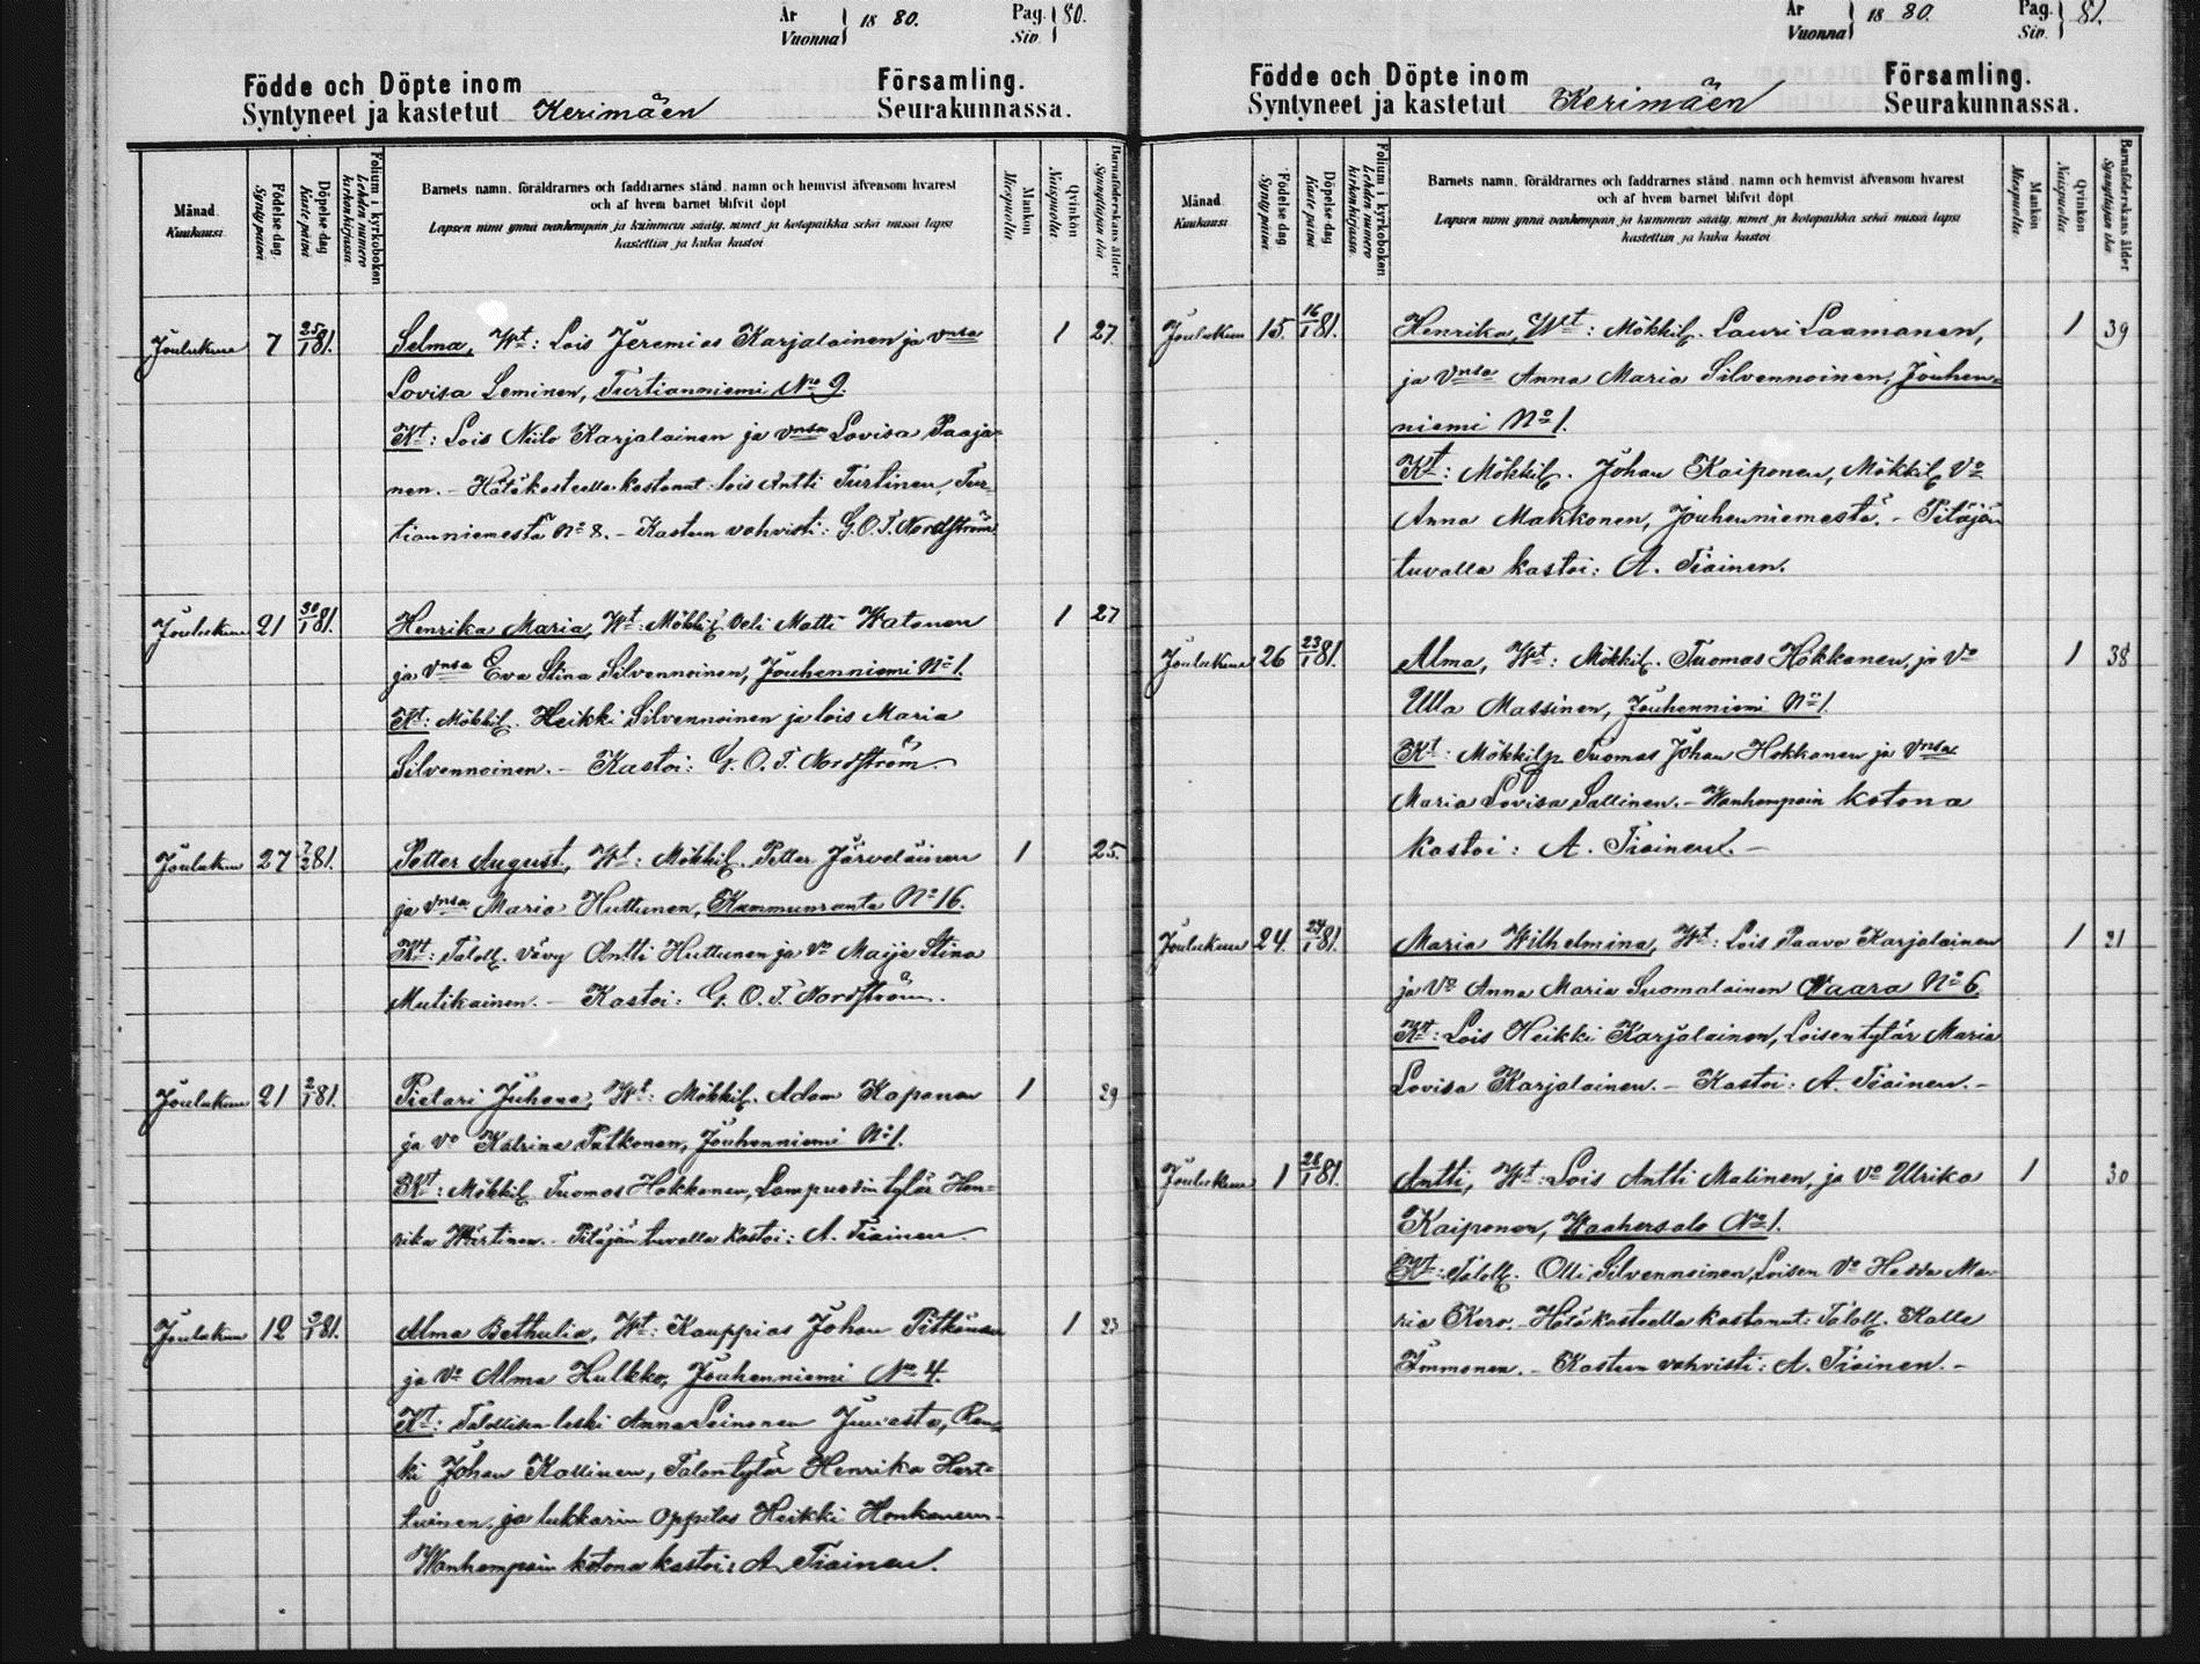 År
Vuonna 18 80.
Pag.
Siv. 80.
Födde och Döpte inom
Syntyneet ja kastetut Kerimäen
Församling.
Seurakunnassa.
Månad
Kuukausi
Födelse dag.
Synty päivä
Döpelse dag
Kaste päivä
Folium i kyrkoboken
Lehden numero
kirkonkirjassa
Barnets namn, föräldrarnes och faddrarnes stånd, namn och hemvist äfvensom hvarest
och af hvem barnet blifvit döpt
Lapsen nimi ynnä vanhempain ja kummein sääty, nimet ja kotopaikka sekä missä lapsi
kastettiin ja kuka kastoi
Mankön
Miespuolia
Qvinkön
Naispuolia
Barnaföderskans ålder
Synnyttäjän ikä
Joulukuu 7 25/1 81. Selma, Wt: Lois Jeremias Karjalainen ja vnsa 1 27
Lovisa Leminen, Turtianniemi No 9.
Kt: Lois Niilo Karjalainen ja vnsa Lovisa Paaja=
nen. – Hätäkasteella kastanut lois Antti Turtinen, Tur=
tianniemestä No 8. – Kasteen vahvisti: G. O. T. Nordström
Joulukuu 21 30/1 81. Henrika Maria, Wt: Mökkil. veli Matti Watanen 1 27
ja vnsa Eva Stina Silvennoinen, Jouhenniemi No 1.
Kt: Mökkil. Heikki Silvennoinen ja lois Maria
Silvennoinen. – Kastoi: G. O. T. Nordström.
Joulukuu 27 7/2 81. Petter August, Wt: Mökkil. Petter Järveläinen 1 25.
ja vnsa Maria Huttunen, Kummunranta No 16.
Kt: Taloll. vävy Antti Huttunen ja vo Maija Stina
Mutikainen. – Kastoi: G. O. T. Nordström.
Joulukuu 21 2/1 81. Pietari Juhana, Wt: Mökkil. Adam Kaponen 1 29
ja vo Katrina Putkonen, Jouhenniemi No 1.
Kt: Mökkil. Tuomas Hokkanen, Lampuodin tytär Hen=
rika Wärtinen. – Pitäjän tuvalla kastoi: A. Tiainen.
Joulukuu 12 9/1 81. Alma Bethulia, Wt: Kauppias Johan Pitkänen 1 23
ja vo Alma Hulkko, Jouhenniemi No 4.
Kt: Talollisen leski Anna Leinonen Juvasta, Ren=
ki Johan Kallinen, Talontytär Henrika Hert=
tuinen, ja lukkarin oppilas Heikki Honkanen. –
Wanhempain kotona kastoi: A. Tiainen.
År
Vuonna 18 80.
Pag.
Siv. 81.
Födde och Döpte inom
Syntyneet ja kastetut Kerimäen
Församling.
Seurakunnassa.
Månad
Kuukausi
Födelse dag
Synty päivä
Döpelse dag
Kaste päivä
Folium i kyrkoboken
Lehden numero
kirkonkirjassa
Barnets namn, föräldrarnes och faddrarnes stånd, namn och hemvist äfvensom hvarest
och af hvem barnet blifvit döpt
Lapsen nimi ynnä vanhempain ja kummein sääty, nimet ja kotopaikka sekä missä lapsi
kastettiin ja kuka kastoi
Mankön
Miespuolia
Qvinkön
Naispuolia
Barnaföderskans ålder
Synnyttäjän ikä
Joulukuu 15. 16/1 81. Henrika, Wt: Mökkil. Lauri Laamanen, 1 39
ja vnsa Anna Maria Silvennoinen, Jouhen=
niemi No 1.
Kt: Mökkil. Johan Kaiponen, Mökkil. vo
Anna Makkonen, Jouhenniemestä. – Pitäjän
tuvalla kastoi: A. Tiainen.
Joulukuu 26 23/1 81. Alma, Wt: Mökkil. Tuomas Hokkanen, ja vo 1 38
Ulla Massinen, Jouhenniemi No 1.
Kt: Mökkil. p. Tuomas Johan Hokkanen ja vnsa
Maria Lovisa Sallinen. – Wanhempain kotona
kastoi: A. Tiainen. –
Joulukuu 24. 24/1 81. Maria Wilhelmina, Wt: Lois Paavo Karjalainen 1 21
ja vo Anna Maria Suomalainen Waara No 6.
Kt: Lois Heikki Karjalainen, Loisentytär Maria
Lovisa Karjalainen. – Kastoi: A. Tiainen. –
Joulukuu 1 28/1 81. Antti, Wt: Lois Antti Malinen, ja vo Ulrika 1 30
Kaiponen, Waahersalo No 1.
Kt: Taloll. Olli Silvennoinen, Loisen vo Hedda Ma=
ria Kero. – Hätäkasteella kastanut: Taloll. Kalle
Immonen. – Kasteen vahvisti: A. Tiainen. –